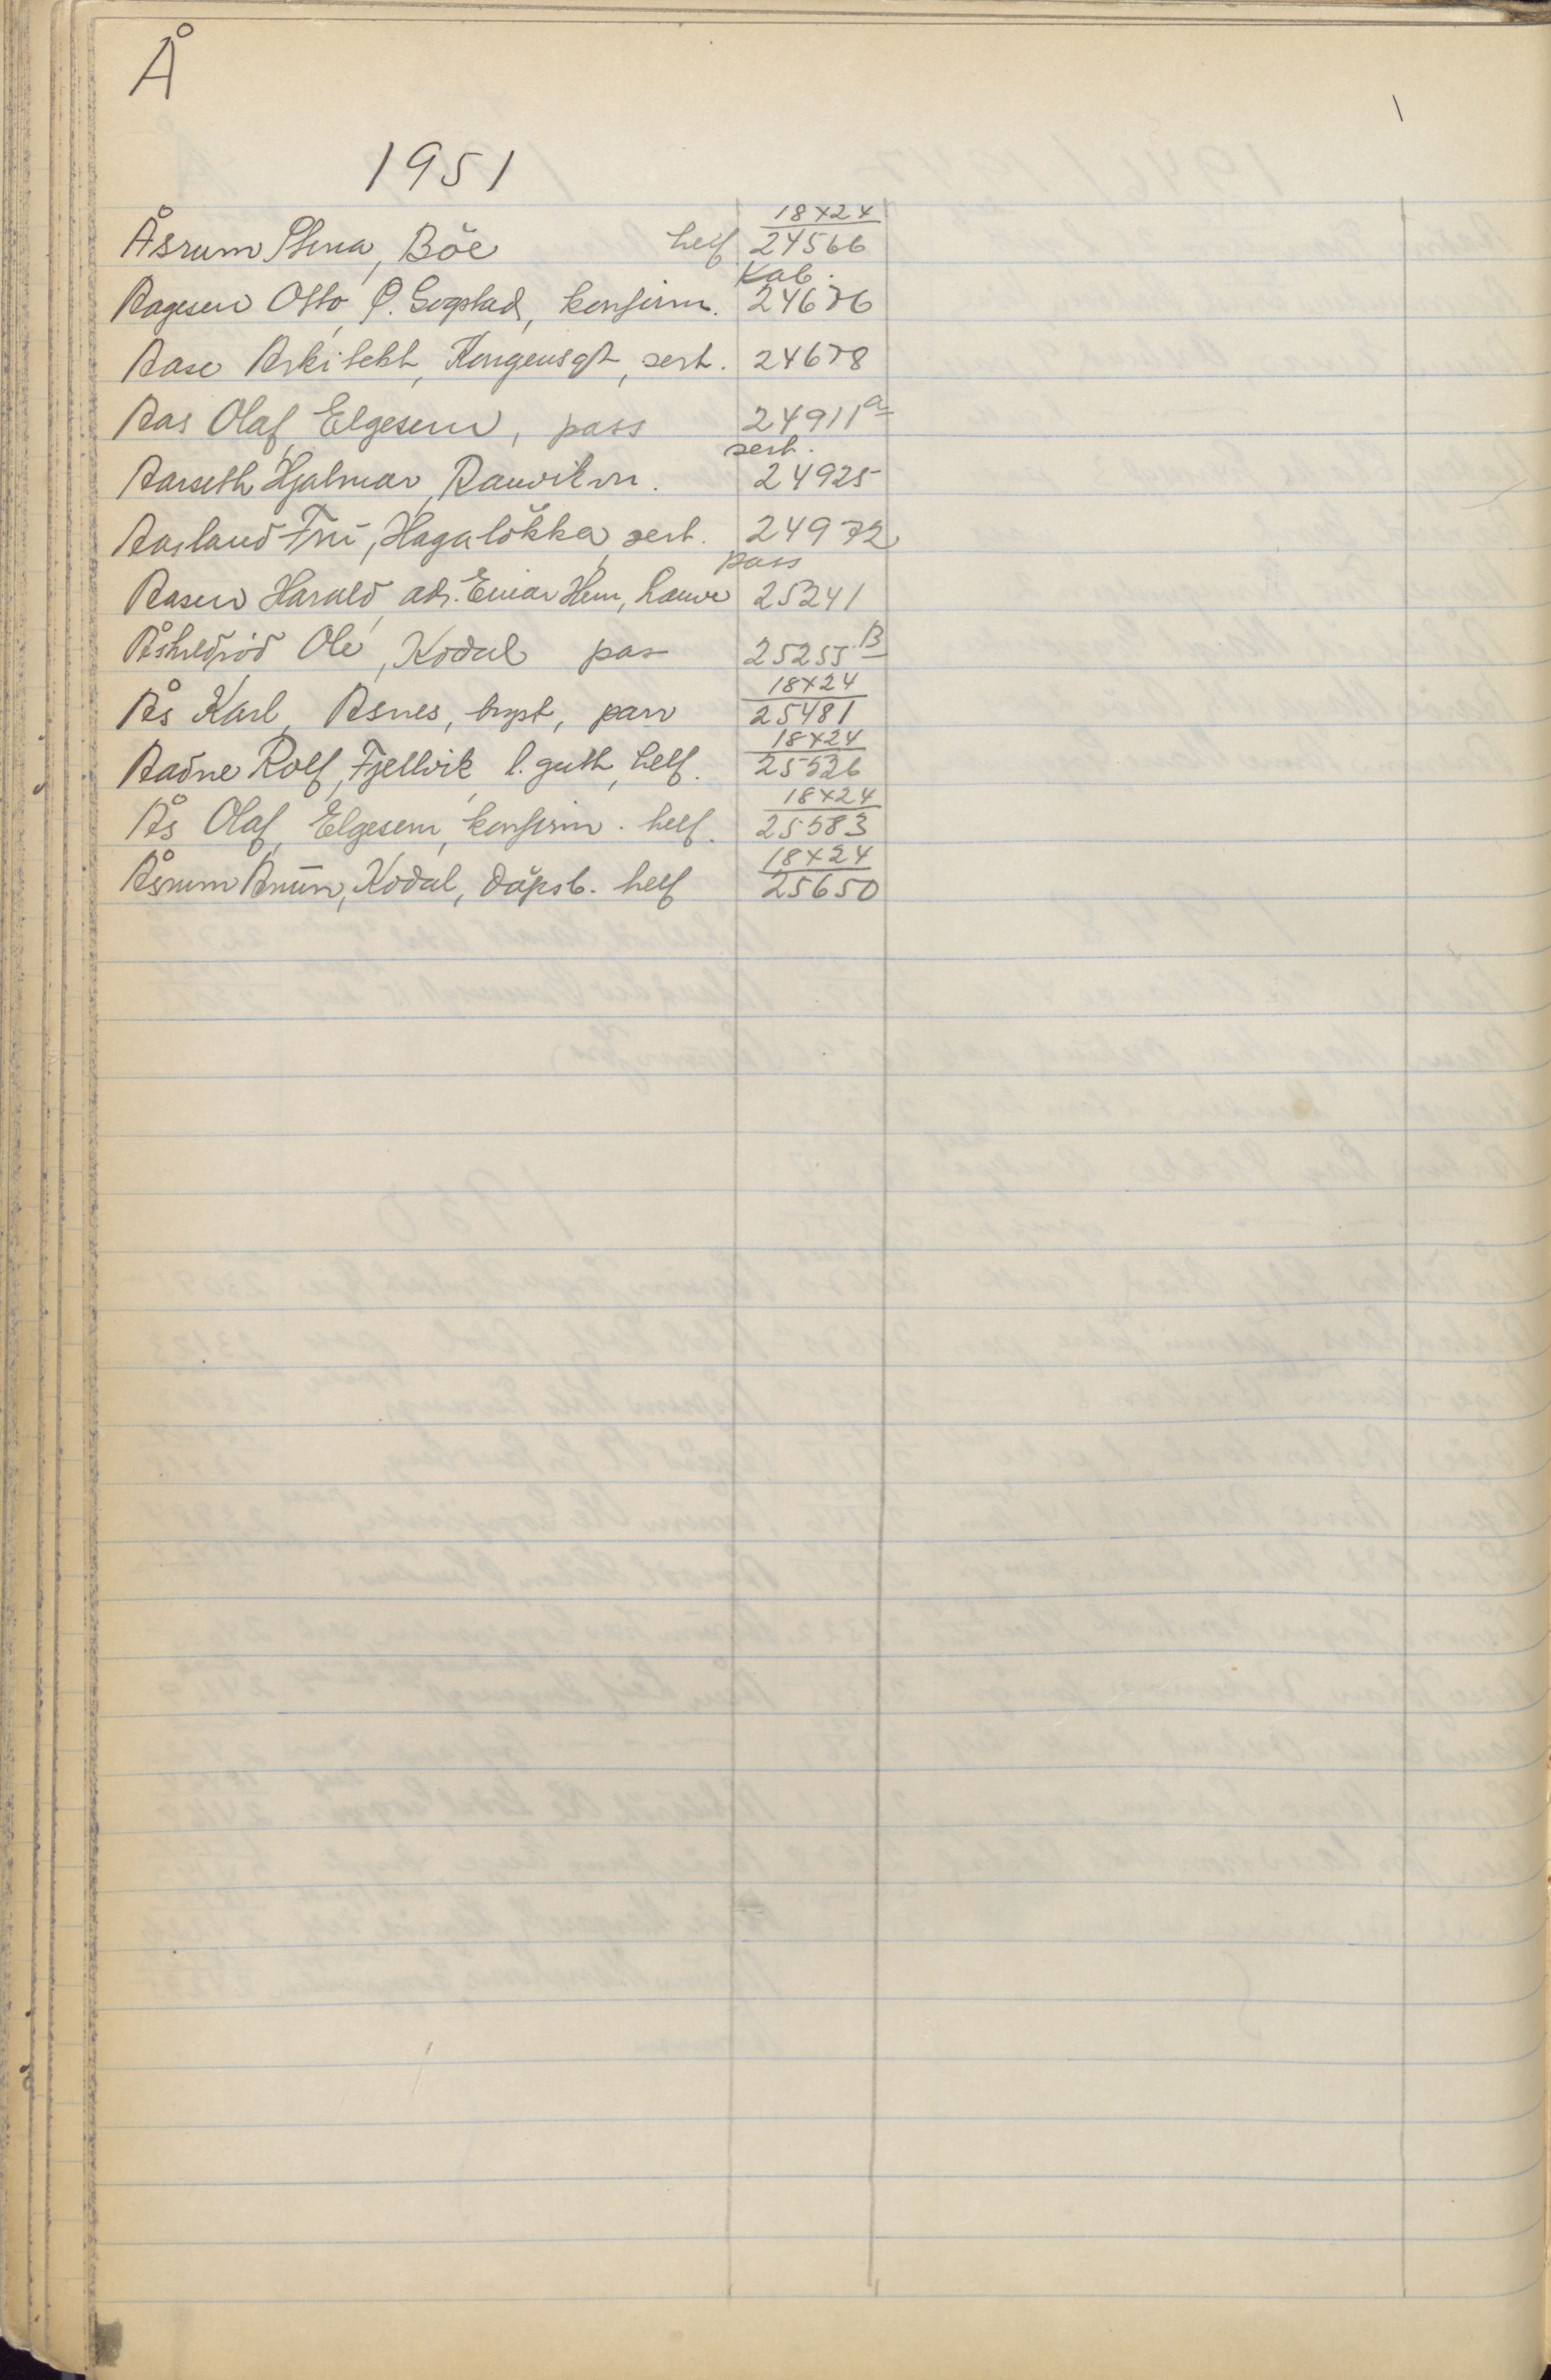 Å
1951
Åsrum Stena, Böe helf 18x24 24566
Aagesen Otto, Ø. Gogstad, konfirm. Kab. 24676
Aase Arkitekt, Kongensgt, sert. 24678
Aas Olaf, Elgesem, pass 24911a
Aarseth Hjalmar, Ranvikvn. sert. 24925
Aasland Fru, Hagalökka, sert. 24972
Aasen Harald, adr. Einar Hem, Lauve pass 25241
Åsheldröd Ole, Kodal pas 25255 B
Ås Karl, Asnes, bryst, pass 18x24 25481
Aadne Rolf, Fjellvik l. gutt, helf. 18x24 25526
Ås Olaf, Elgesem, konfirm. helf. 18x24 25583
Åsrum, Kodal, dåpsb. helf 18x24 25650